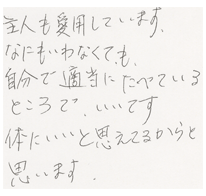 主人も愛用しています、
なにもいわなくても、
自分で適当にたべている
ところで、いいです
体にいいと思えてるからと
思います.